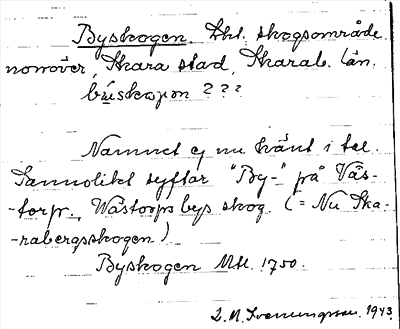 Byskogen. Ekl. skogsområde
norröver, Skara stad, Skarab. län.
búskojon ???
Namnet ej nu känt i tal.
Sannolikt syftar "By-" på Väs-
-torp. Wästorps bys skog. (= Nu Ska-
-rabergsskogen)
Byskogen Mtl. 1750.
1943.